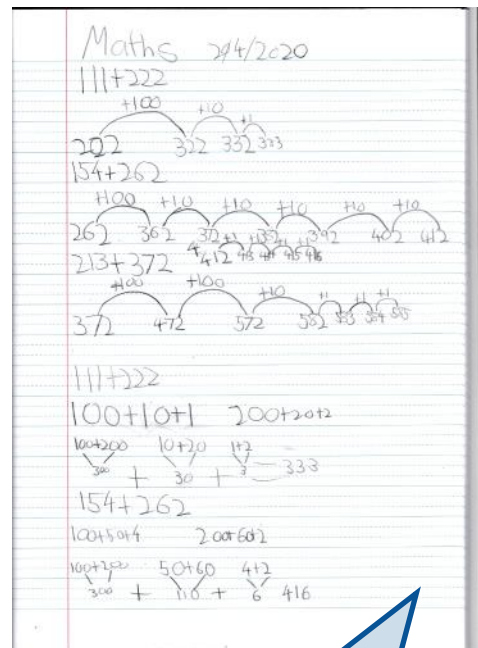 Maths 29/4/2020
111+222
+100 +10 +1
202 322 332 333
154+262
+100 +10 +10 +10 +10 +10
262 362 372 392 402 412
412 413 414 415 416
213+372
+100 +100 +10 +1 +1 +1
372 472 572 582 583 584 585
111+222
100+10+1 200+20+2
100+200 10+20 1+2
300 + 30 + 3 = 333
154+262
100+50+4 200+60+2
100+200 50+60 4+2
300 + 110 + 6 416